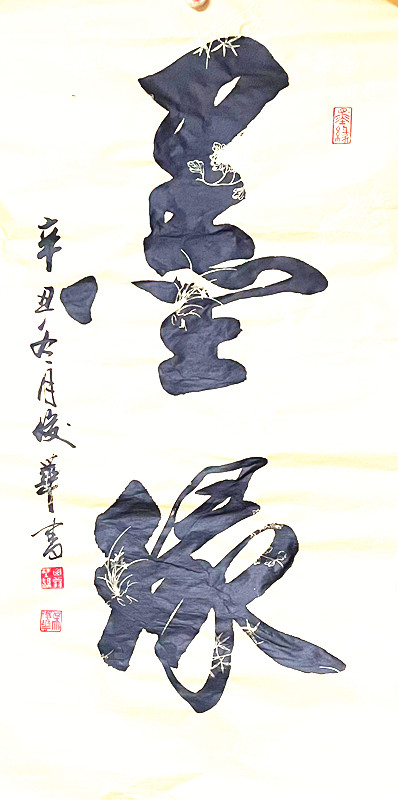 墨緣
辛丑冬月俊華書